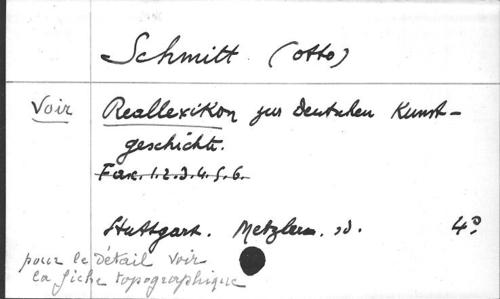 Schmitt (Otto)
Voir Reallexikon zur Deutschen Kunst-
geschichte.
Fasc. 1.2.3.4.5.6.
Stuttgart. Metzler. s.d. 4°
pour le détail voir
la fiche topographique